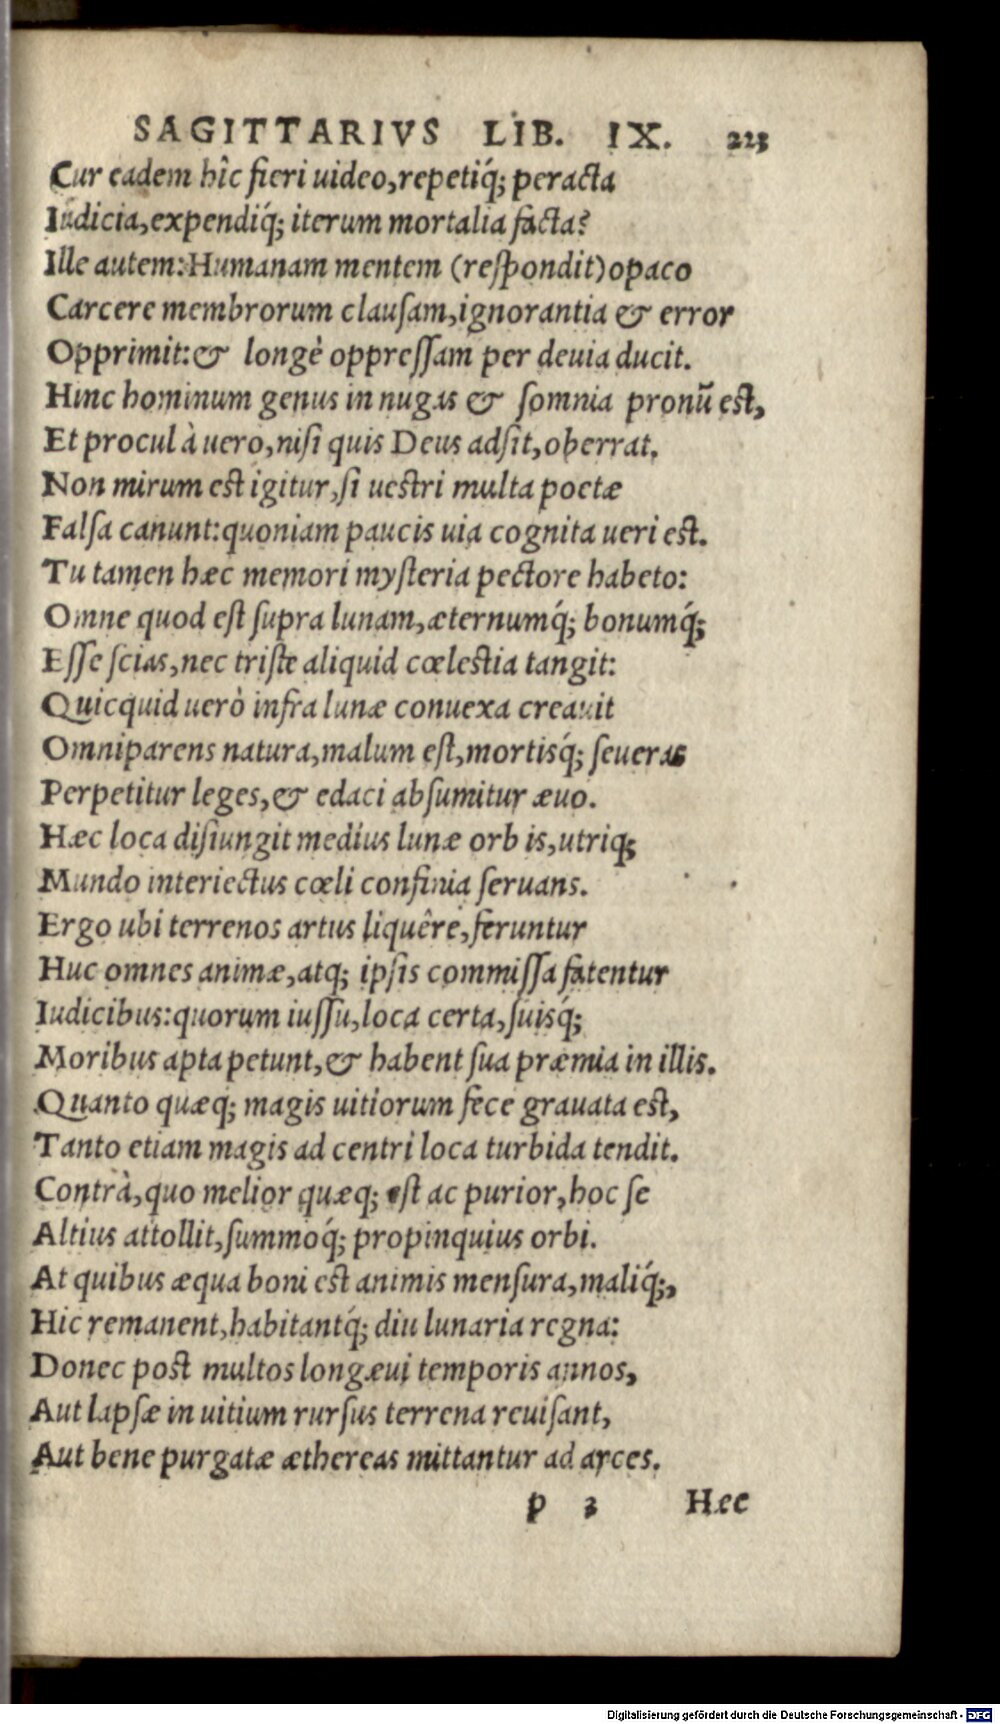 SAGITTARIVS LIB. IX. 223
Cur eadem hîc fieri uideo,repetiq́; peracta
Iudicia,expendiq́; iterum mortalia facta?
Ille autem:Humanam mentem (reſpondit)opaco
Carcere membrorum clauſam,ignorantia & error
Opprimit:& longè oppreſſam per deuia ducit.
Hinc hominum genus in nugas & ſomnia pronū est,
Et procul à uero,niſi quis Deus adſit,oberrat.
Non mirum est igitur,ſi uestri multa poetæ
Falſa canunt:quoniam paucis uia cognita ueri est.
Tu tamen hæc memori myſteria pectore habeto:
Omne quod eſt ſupra lunam,æternumq́; bonumq́;
Eſſe ſcias,nec triſte aliquid cœlestia tangit:
Quicquid uerò infra lunæ conuexa creauit
Omniparens natura,malum eſt,mortisq́; ſeueras
Perpetitur leges,& edaci abſumitur æuo.
Hæc loca diſiungit medius lunæ orbis,utriq;
Mundo interiectus cœli confinia ſeruans.
Ergo ubi terrenos artus liquêre,feruntur
Huc omnes animæ,atq; ipſis commiſſa fatentur
Iudicibus:quorum iuſſu,loca certa,ſuisq́;
Moribus apta petunt,& habent ſua præmia in illis.
Quanto quæq; magis uitiorum fece grauata est,
Tanto etiam magis ad centri loca turbida tendit.
Contrà,quo melior quæq; eſt ac purior,hoc ſe
Altius attollit,ſummoq́; propinquius orbi.
At quibus æqua boni est animis menſura,maliq́;,
Hic remanent,habitantq́; diu lunaria regna:
Donec post multos longæui temporis annos,
Aut lapſæ in uitium rurſus terrena reuiſant,
Aut bene purgatæ æthereas mittantur ad arces.
p 3 Hæc
Digitalisierung gefördert durch die Deutsche Forschungsgemeinschaft - DFG